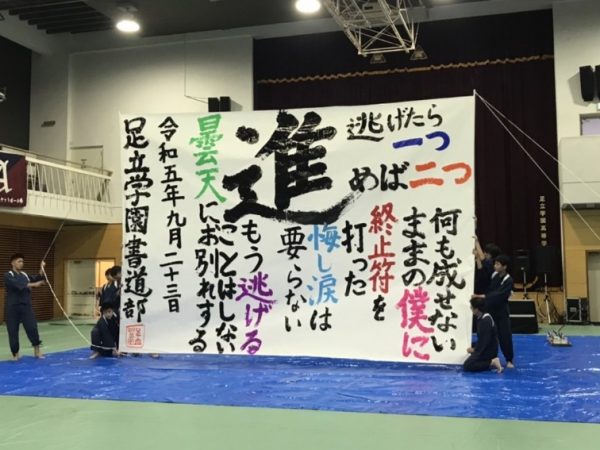 逃げたら一つ
進めば二つ
何も成せない
ままの僕に
終止符を
打った
悔し涙は
要らない
もう逃げる
ことはしない
曇天にお別れする
令和五年九月二十三日
足立学園書道部